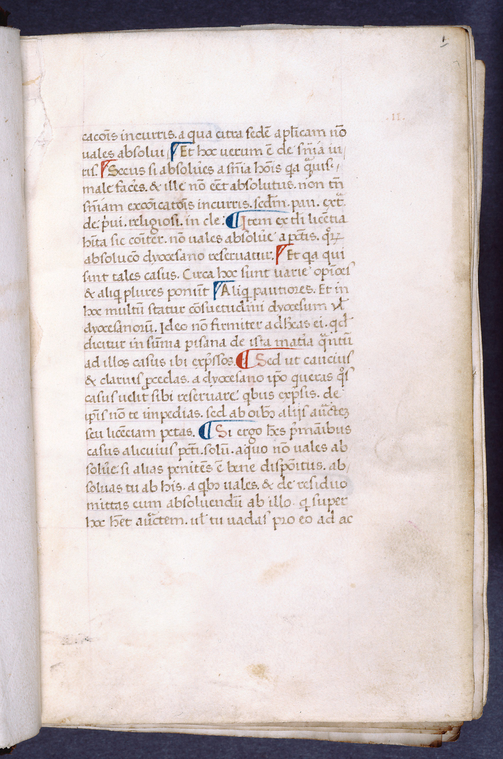 1
.II.
cacōīs incurris. a qua citra sedē aplicam nō
uales absolui. ¶ Et hoc uerum ē de sn̄ia iu
ris. ¶ Secus si absolues a sn̄ia hoīs qa quisi
male faceš. & ille nō eēt absolutus. non tn̄
sn̄iam excōicatōīs incurris. scdm. pan. ext.
de. pui. religiosi. in cle. ¶ Item ex tali licētia
hīta sic coīter. nō uales absolue a pctis. qr̄
absolucō dyocesano reseruatur. ¶ Et qa qui
sint tales casus. Circa hoc sunt uarie opioēs
& aliq plures ponūt ¶ Aliq pautiores. Et in
hoc multū statur cōsuetudini dyocesum ul
dyocesanorū. Ideo nō firmiter adheas ei. qd
dicitur in sūma pisana de ista matia quītū
ad illos casus ibi expssos. ¶ Sed ut cautius
& clarius pcedas. a dyocesano ipo queras qs
casus uelit sibi reseruare. qbus expsis. de
ipīs nō te īmpedias. sed ab oībꝫ alijs auctēꝫ
seu licētiam petas. ¶ Si ergo hēs pmanibus
casus alicuius pcti. solū. a quo nō uales ab
solue. si alias penitēs ē bene dispōitus. ab
soluas tu ab his. a qbꝫ uales. & de residuo
mittas eum absoluendū ab illo. q super
hoc het auctem. ul tu uadas pro eo ad ac